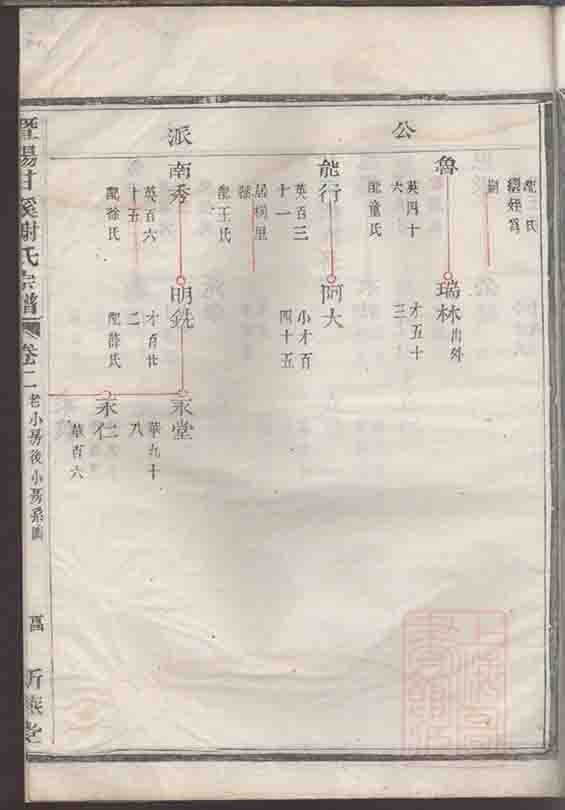 公派
配王氏
魯
英四十
六
配童氏
瑞林
出外
才五十
三
能行
英百三
十一
阿大
小才百
四十五
居桐里
配王氏
南秀
英百六
十五
配徐氏
明銑
才百廿
二
配薛氏
永堂
華九十
八
永仁
華百六
暨陽甘溪謝氏宗譜
卷二
老小房後小房系圖